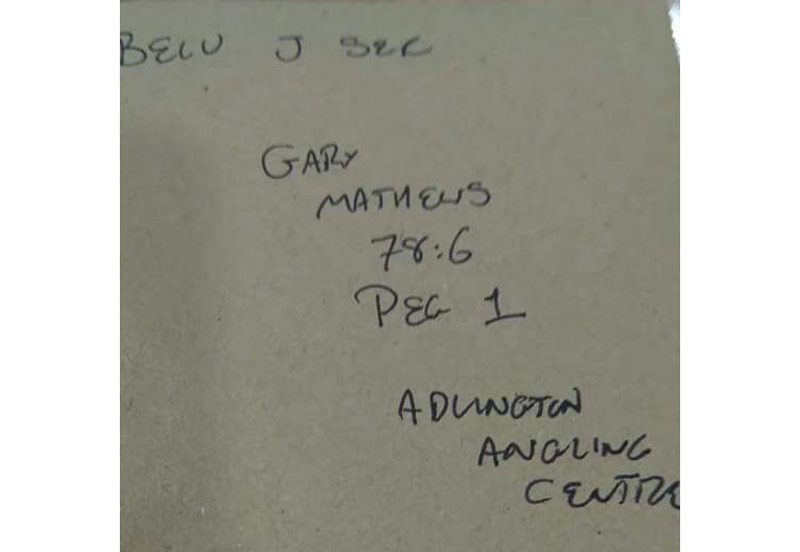 BELU J SEC
GARY
MATHEWS
78:6
PEG 1
ADLINGTON
ANGLING
CENTRE